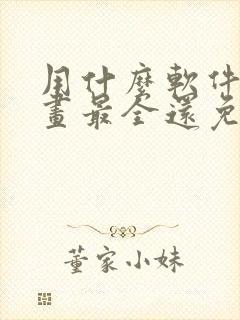 用什麼軟件
畫最全還免
董家小妹